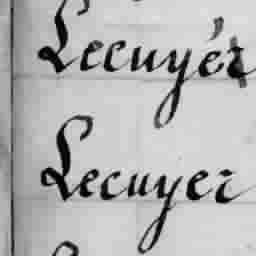 Lecuyér
Lecuyer